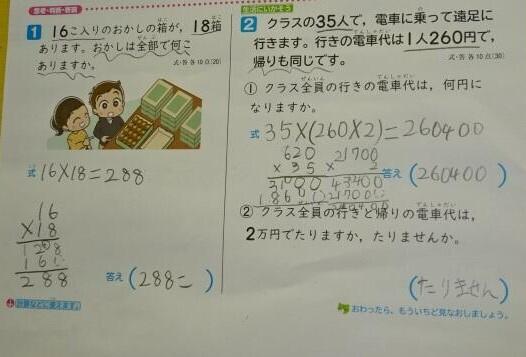 思考・判断・表現
1 16こ入りのおかしの箱が，18箱
あります。おかしは全部で何こ
ありますか。
式・答 各10点(20)
式 16×18=288
16
×18
128
16
288
答え (288こ)
計算などに使えます。
生活にいかそう
2 クラスの35人で，電車に乗って遠足に
行きます。行きの電車代は1人260円で，
帰りも同じです。
式・答 各10点(30)
① クラス全員の行きの電車代は，何円に
なりますか。
式 35×(260×2)=260400
620 21700
×35 × 2
3100 43400
答え (260400)
② クラス全員の行きと帰りの電車代は，
2万円でたりますか，たりませんか。
(たりません)
おわったら、もういちど見なおしましょう。